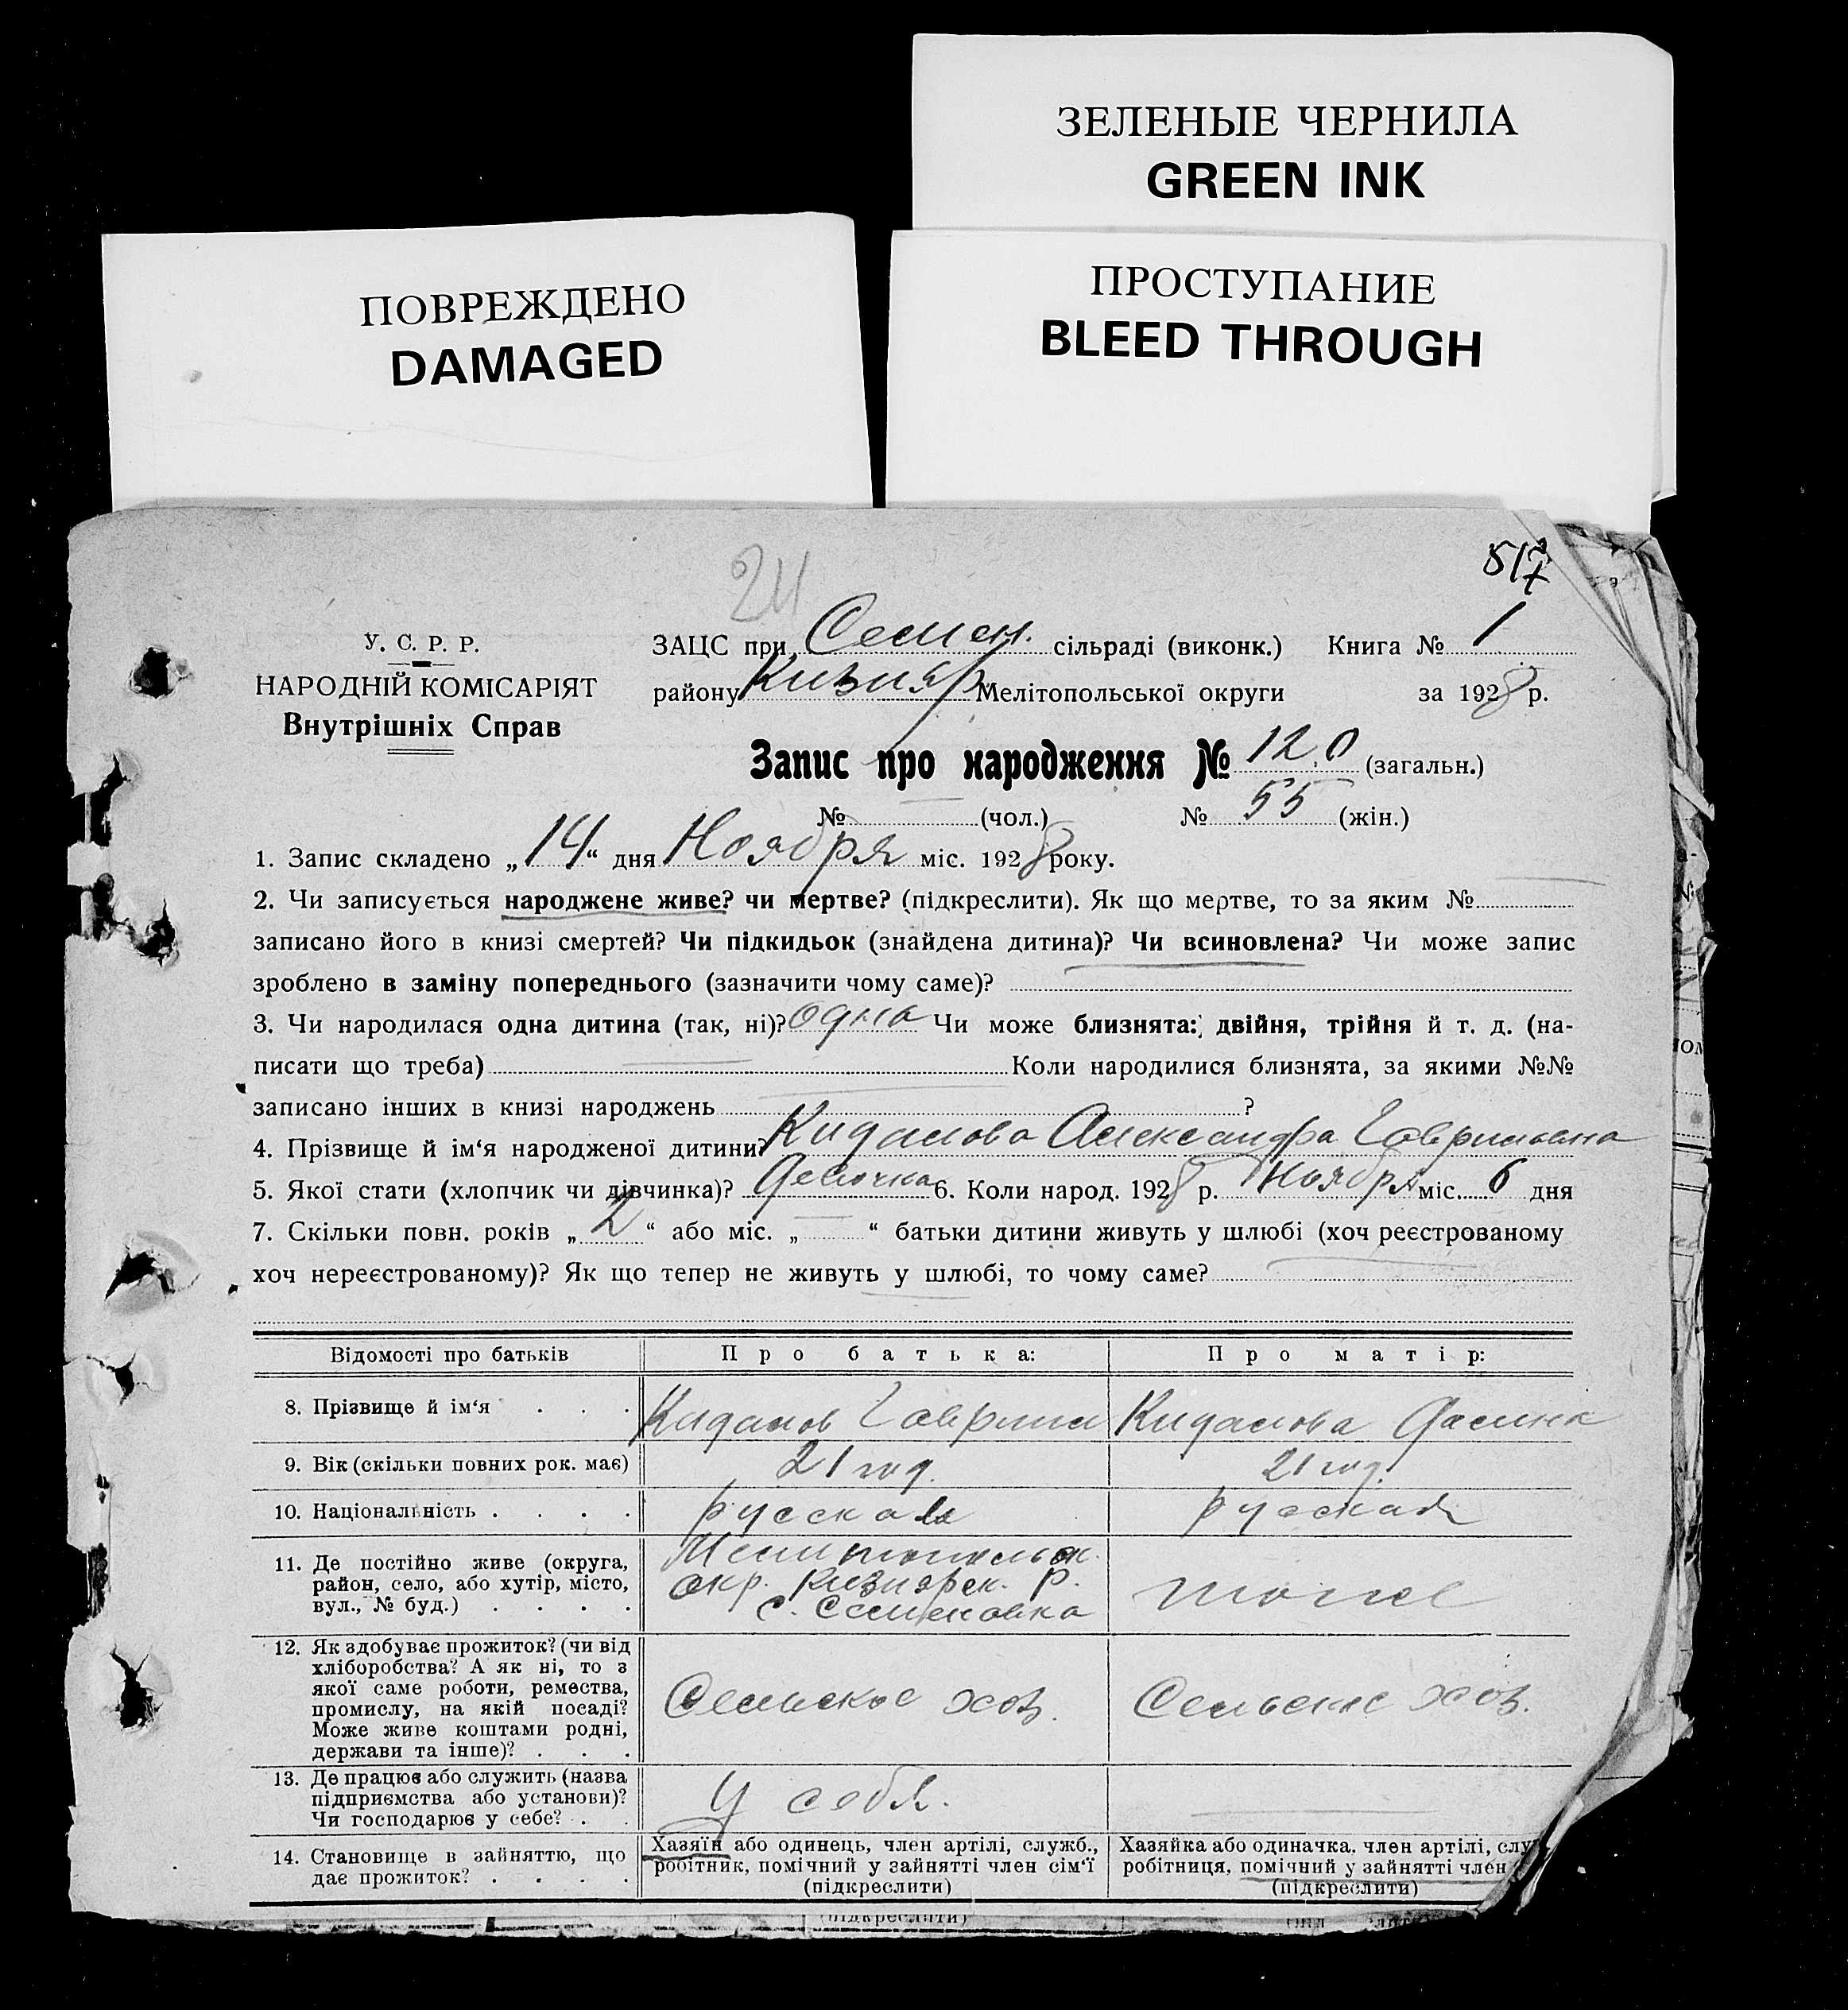 ЗЕЛЕНЫЕ ЧЕРНИЛА
GREEN INK
ПОВРЕЖДЕНО
DAMAGED
ПРОСТУПАНИЕ
BLEED THROUGH
517
24
У. С. Р. Р.
НАРОДНІЙ КОМІСАРІЯТ
Внутрішніх Справ
ЗАЦС при Семен. сільраді (виконк.) Книга № 1
району Кизияр. Мелітопольської округи за 1928 р.
Запис про народження № 120 (загальн.)
№ (чол.) № 55 (жін.)
1. Запис складено „14“ дня Ноября міс. 1928 року.
2. Чи записується народжене живе? чи мертве? (підкреслити). Як що мертве, то за яким №
записано його в книзі смертей? Чи підкидьок (знайдена дитина)? Чи всиновлена? Чи може запис
зроблено в заміну попереднього (зазначити чому саме)?
3. Чи народилася одна дитина (так, ні)? одна Чи може близнята: двійня, трійня й т. д. (на-
писати що треба) Коли народилися близнята, за якими №№
записано інших в книзі народжень ?
4. Прізвище й ім‘я народженої дитини? Кидалова Александра Гавриловна
5. Якої стати (хлопчик чи дівчинка)? Девочка 6. Коли народ. 1928 р. Ноября міс. 6 дня
7. Скільки повн. років „2“ або міс. „ “ батьки дитини живуть у шлюбі (хоч реєстрованому
хоч нереєстрованому)? Як що тепер не живуть у шлюбі, то чому саме?
Відомості про батьків Про батька: Про матір:
8. Прізвище й ім‘я . . . Кидалов Гаврил Кидалова
9. Вік (скільки повних рок. має) 21 год. 21 год.
10. Національність . . . . русская русская
11. Де постійно живе (округа,
район, село, або хутір, місто,
вул., № буд.) . . . .
Мелитопольск.
окр. Кизиярск. р.
с. Семеновка
тоже
12. Як здобуває прожиток? (чи від
хліборобства? А як ні, то з
якої саме роботи, ремества,
промислу, на якій посаді?
Може живе коштами родні,
держави та інше)? . . .
Сельское хоз. Сельское хоз.
13. Де працює або служить (назва
підприємства або установи)?
Чи господарює у себе? . .
У себя.
14. Становище в зайняттю, що
дає прожиток? . . . .
Хазяїн або одинець, член артілі, служб.,
робітник, помічний у зайнятті член сім‘ї
(підкреслити)
Хазяйка або одиначка, член артілі, слу
робітниця, помічний у зайнятті член
(підкреслити)
(підкреслити)